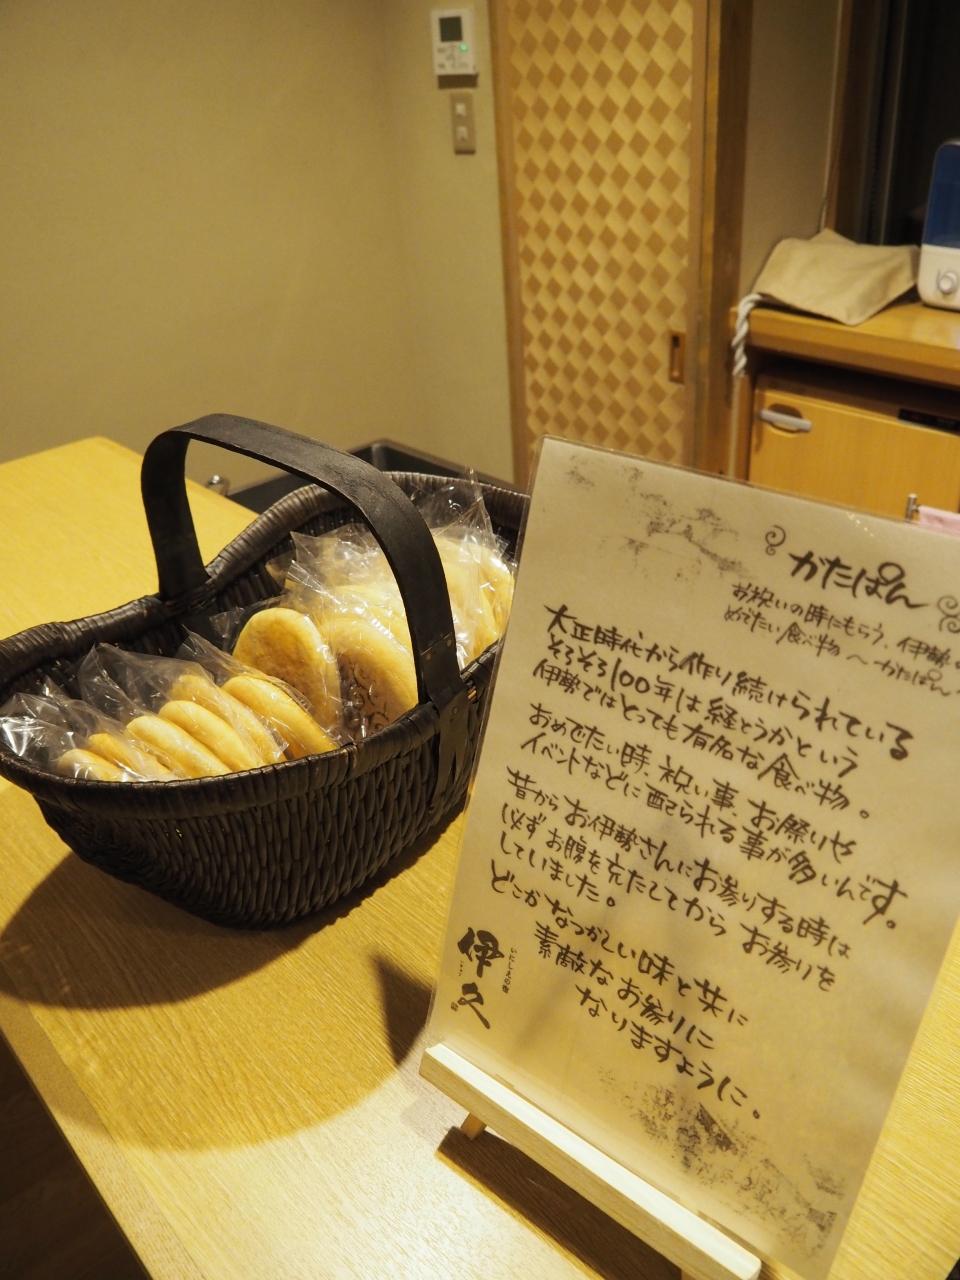 かたぱん
お祝いの時にもらう、伊勢の
めでたい食べ物 〜かたぱん〜
大正時代から作り続けられている
そろそろ100年は経とうかという
伊勢ではとっても有名な食べ物。
おめでたい時、祝い事、お願いや
イベントなどに配られる事が多いんです。
昔からお伊勢さんにお参りする時は
必ずお腹を充たしてからお参りを
していました。
どこかなつかしい味と共に
素敵なお参りに
なりますように。
いにしえの宿
伊久